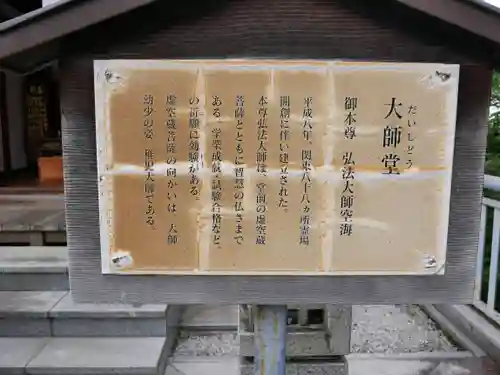 だいしどう
大師堂
御本尊 弘法大師空海
平成八年、関東八十八ヵ所霊場
開創に伴い建立された。
本尊弘法大師は、堂前の虚空蔵
菩薩とともに智慧の仏さまで
ある。学業成就・試験合格など、
の祈願に効験がある。
虚空蔵菩薩の向かいは、大師
幼少の姿、稚児大師である。